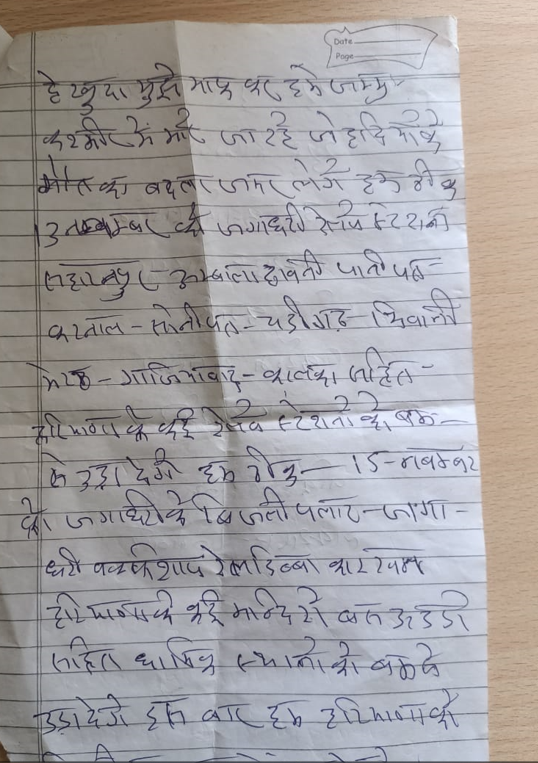 Date
Page
हे खुदा मुझे माफ कर हमें जम्मु-
कश्मीर में मारे जा रहे जेहादियों के
मौत का बदला जरूर लेगें हम ठीक
13 नवम्बर को जगाधरी रेलवे स्टेशन
सहारनपुर - अम्बाला छावनी पानीपत -
करनाल - सोनीपत - चडीगढ़ - भिवानी
मेरठ - गाजियाबाद - कालका सहित -
हरियाणा के कई रेलवे स्टेशनों को बम -
से उड़ा देगें हम ठीक - 15 - नवम्बर
को जगाधरी के बिजली पलांट - जगा -
धरी वर्कशाप रेल डिब्बा कारखाना
हरियाणा के कई मन्दिरों बस अड्डो
सहित धार्मिक स्थानों को बम से
उड़ा देगें इस बार हम हरियाणा को